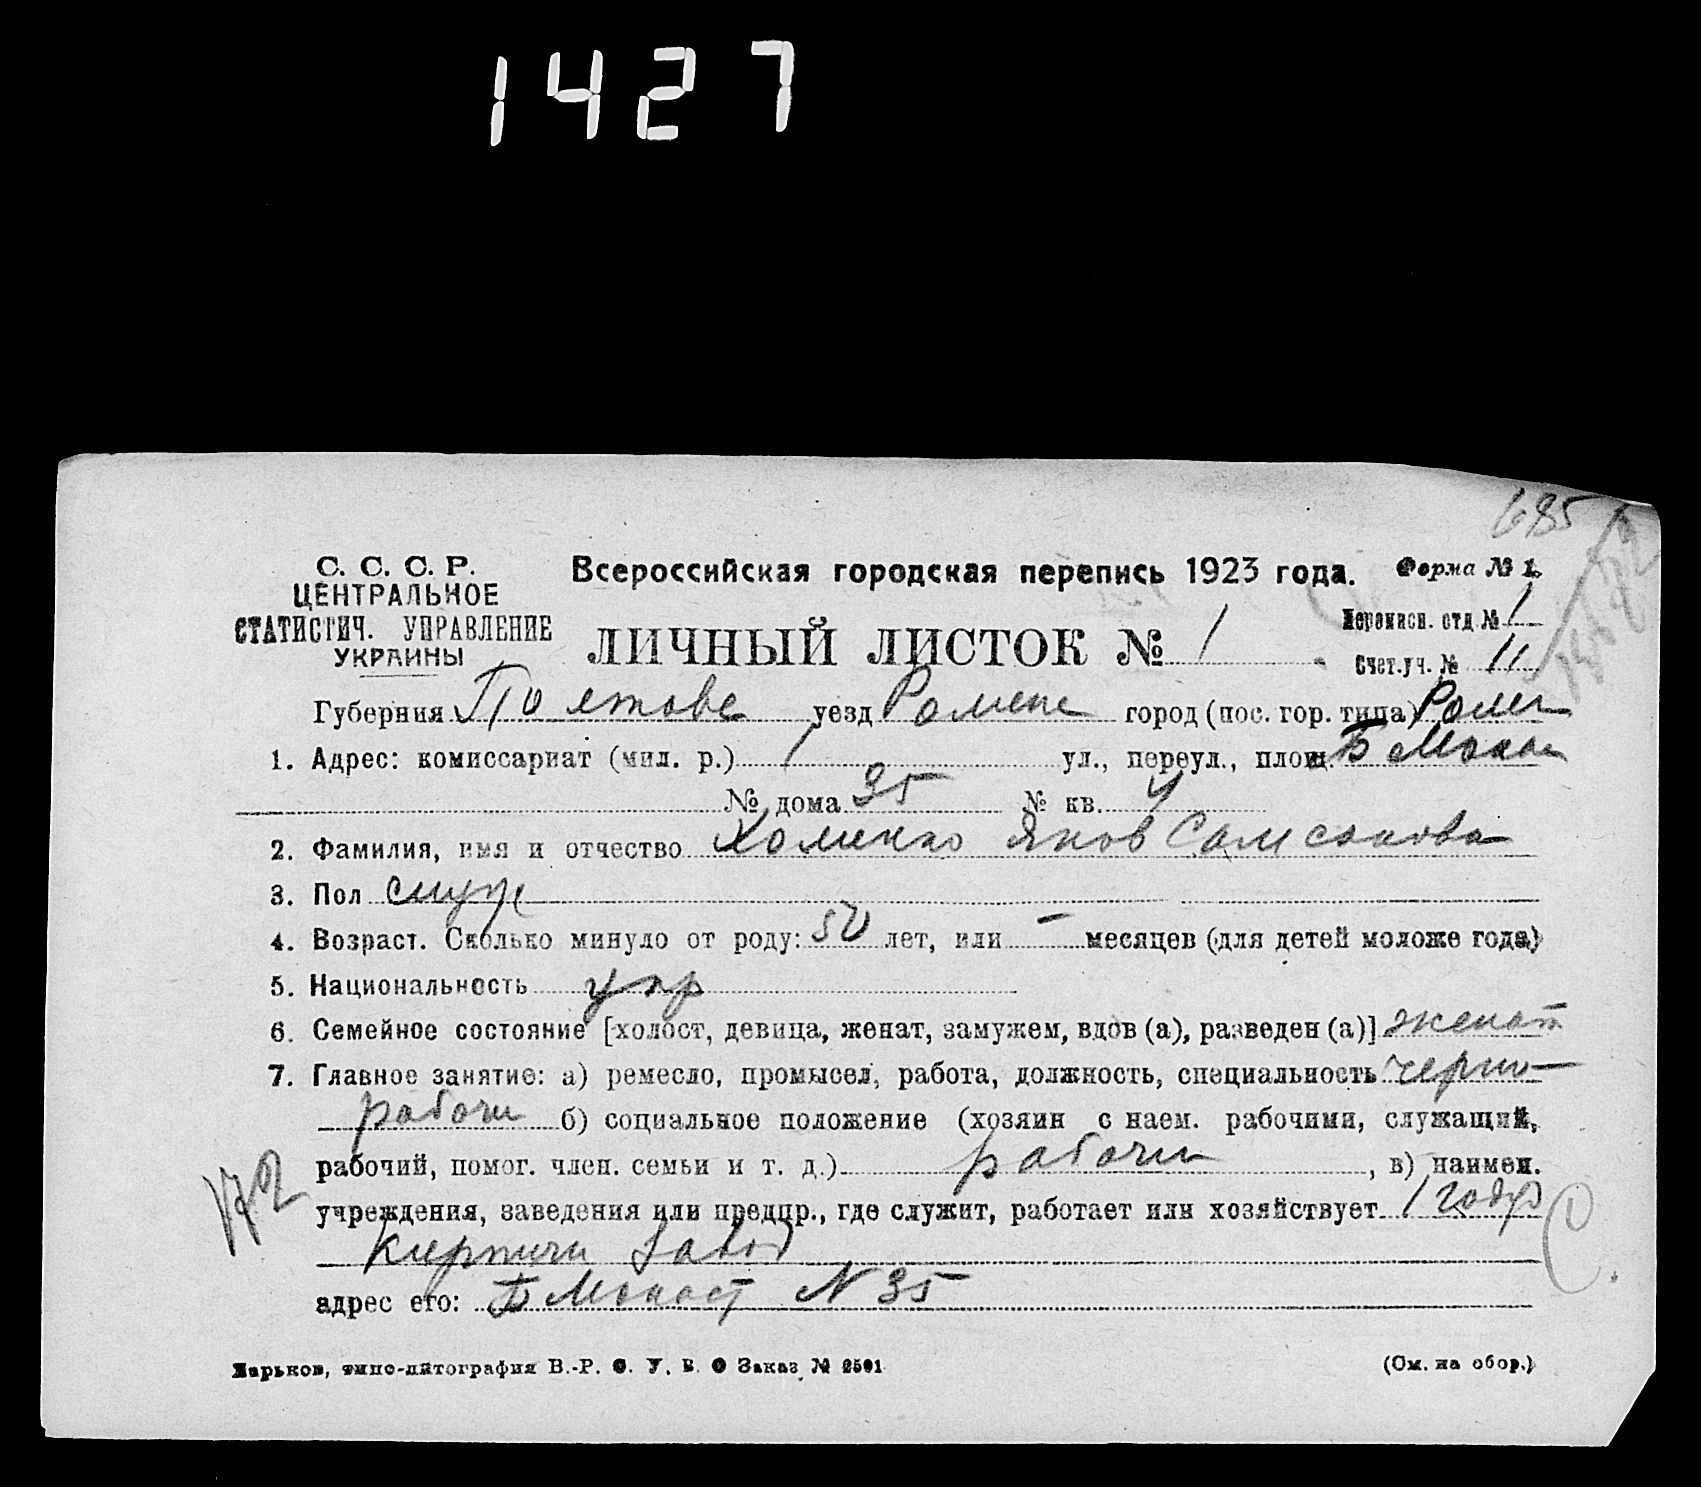 1427
685
С. С. С. Р.
ЦЕНТРАЛЬНОЕ
СТАТИСТИЧ. УПРАВЛЕНИЕ
УКРАИНЫ
Всероссийская городская перепись 1923 года.
Форма № 1.
ЛИЧНЫЙ ЛИСТОК № 1
Переписн. отд. № 1
Счет. уч. № 11
Губерния Полтаве уезд Ромене город (пос. гор. типа) Ромен
1. Адрес: комиссариат (мил. р.) 1 ул., переул., площ. Б Монас
№ дома 35 № кв. 4
2. Фамилия, имя и отчество Хоменко Яков Самсонова
3. Пол
4. Возраст. Сколько минуло от роду: 50 лет, или – месяцев (для детей моложе года)
5. Национальность укр
6. Семейное состояние [холост, девица, женат, замужем, вдов (а), разведен (а)] женат
7. Главное занятие: а) ремесло, промысел, работа, должность, специальность черно-
рабочи б) социальное положение (хозяин с наем. рабочими, служащий,
рабочий, помог. член. семьи и т. д.) рабочи , в) наимен.
172
учреждения, заведения или предпр., где служит, работает или хозяйствует 1
Кирпичи завод
адрес его: Б Монаст N 35
Харьков, типо-литография В.-Р. С. У. В. О Заказ № 2591
(См. на обор.)